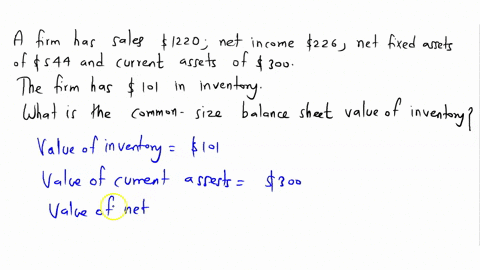 A firm has sales $1220, net income $226, net fixed assets
of $544 and current assets of $300.
The firm has $101 in inventory.
What is the common-size balance sheet value of inventory?
Value of inventory = $101
Value of current assests = $300
Value of net